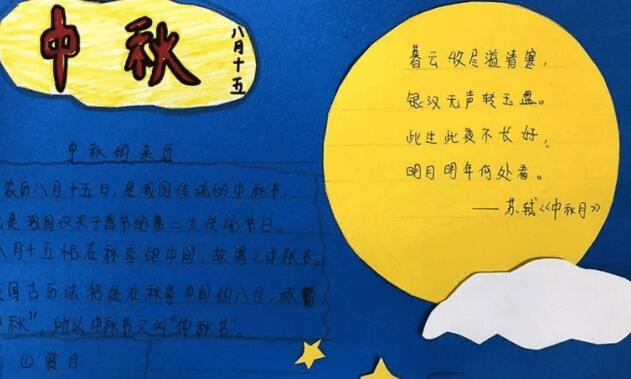 中秋
八月十五
暮云收尽溢清寒，
银汉无声转玉盘。
此生此夜不长好，
明月明年何处看。
——苏轼《中秋月》
中秋的来历
农历八月十五日，是我国传统的中秋节，
是我国仅次于春节的第二大传统节日。
八月十五恰在秋季的中间，故谓之中秋节。
我国古历法把处在秋季中间的八月，
中秋”，所以中秋节又叫“仲秋节”。
①赏月